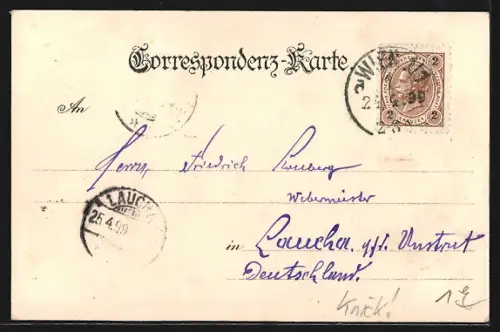 Correspondenz-Karte.
WIEN
2
99
2 2
An
Herrn Friedrich
Webermeister
LAUCHA
25.4.99
in Laucha a/d Unstrut
Deutschland.
Knick!